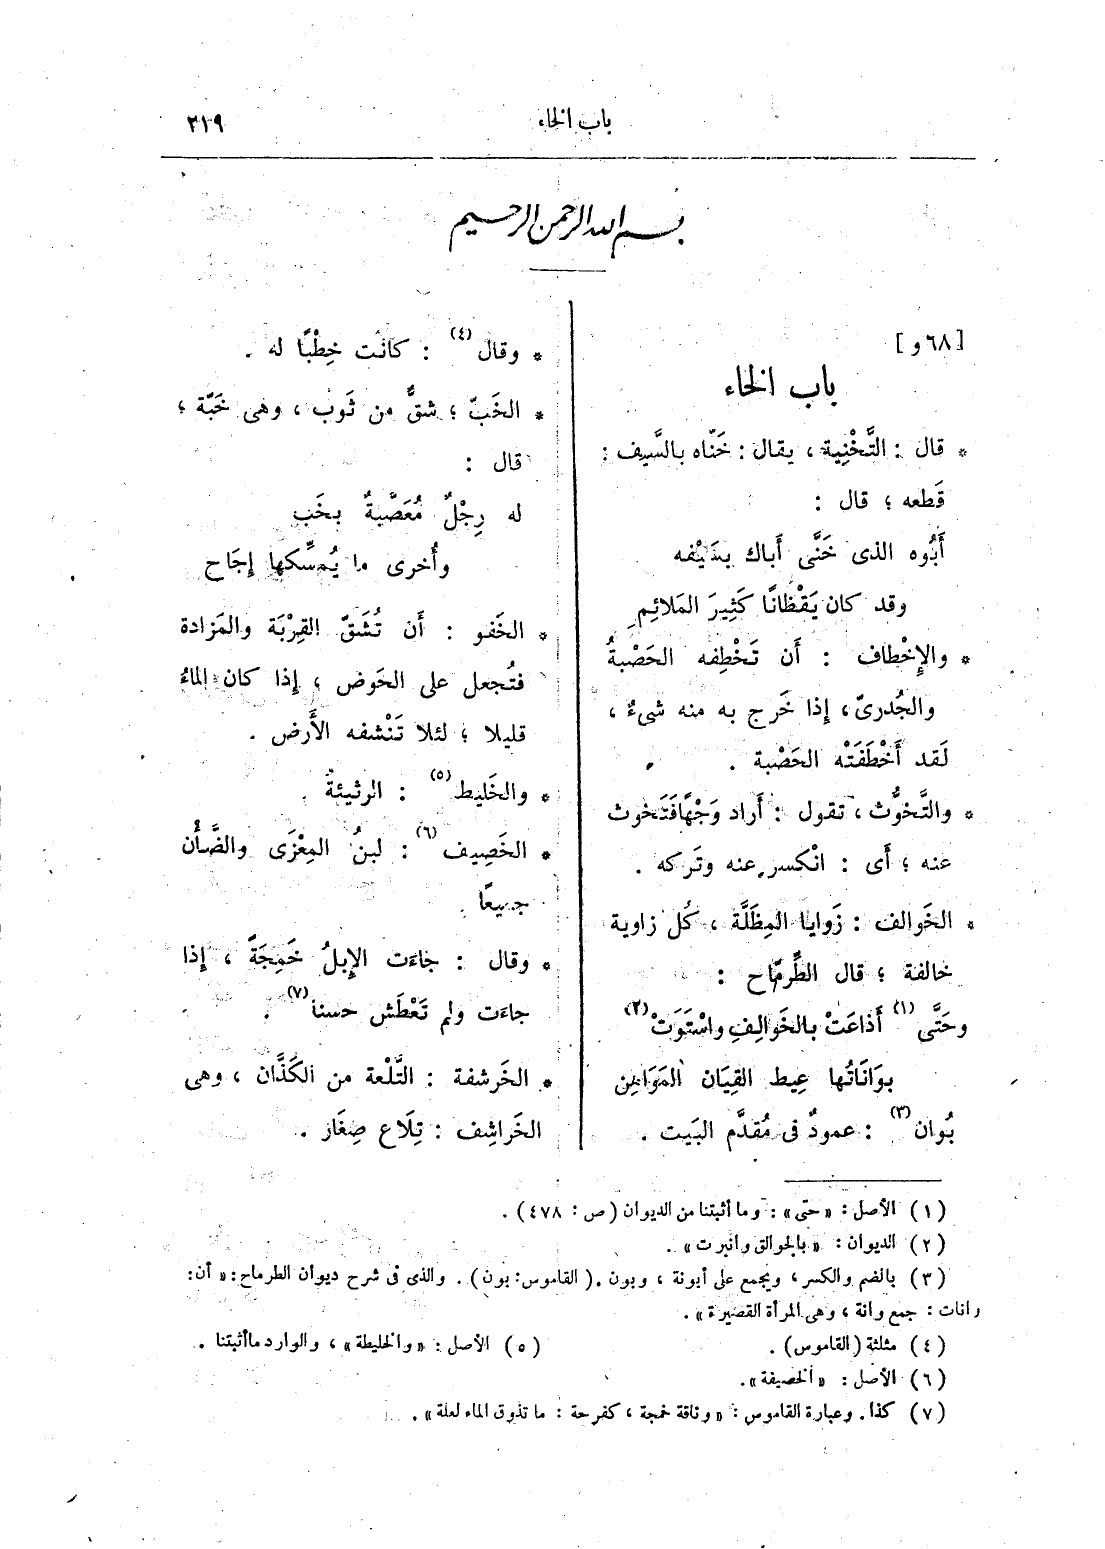 باب الخاء
٢١٩
بسم الله الرحمن الرحيم
[٦٨ و]
باب الخاء
* قال : التَّخْنِية ، يقال : خَنّاه بالسَّيف :
قَطعه ؛ قال :
أَبُوه الذى خَنَّى أَباك بسَيْفه
وقد كان يَقْظانًا كَثِيرَ المَلائِمِ
* والإِخْطاف : أَن تَخْطِفه الحَصْبةُ
والجُدرىّ ، إِذا خَرج به منه شىءٌ ،
لَقد أَخْطَفَتْه الحَصْبة .
* والتَّخوُّث ، تقول : أَراد وَجْهًا فَتَخوث
عنه ؛ أَى : انْكسر عنه وتَركه .
* الخَوالف : زَوايا المِظَلَّة ، كُل زاوية
خالفة ؛ قال الطِّرمّاح :
وحَتَّى (١) أَذاعَتْ بالخَوالِفِ واسْتَوَتْ (٢)
بوَانَاتُها عِيط القِيَان المَوَاهِن
بُوان (٣) : عمودٌ فى مُقدَّم البَيت .
* وقال (٤) : كانت خِطْبًا له .
* الخَبّ ؛ شقٌّ من ثَوب ، وهى خَبّة ؛
قال :
له رِجْلٌ مُعَصَّبةٌ بخَب
وأُخرى ما يُمسِّكها إِجَاح
* الخَفو : أَن تُشَقّ القِرْبَة والمَزادة
فتُجعل على الحَوض ، إِذا كان الماءُ
قليلا ؛ لئلا تَنْشفه الأَرض .
* والخَليط (٥) : الرثيئةُ .
* الخَصِيف (٦) : لبنُ المِعْزَى والضَّأْن
جميعًا .
* وقال : جاءَت الإِبلُ خَمِجَةً ، إِذا
جاءَت ولم تَعْطَش حسنا (٧) .
* الخَرشفة : التَّلْعة من الكَذَّان ، وهى
الخَراشِف : تِلَاع صِغَار .
(١) الأصل : «حتى» : وما أثبتنا من الديوان (ص : ٤٧٨) .
(٢) الديوان : «بالخوالق وانبرت» .
(٣) بالضم والكسر ، ويجمع على أبونة ، وبون . (القاموس : بون) . والذى فى شرح ديوان الطرماح : «أن :
وانات : جمع وانة ، وهى المرأة القصيرة» .
(٤) مثلثة (القاموس) .
(٥) الأصل : «والخليطة» ، والوارد ما أثبتنا .
(٦) الأصل : «الخصيفة» .
(٧) كذا . وعبارة القاموس : «وناقة خمجة ، كفرحة : ما تذوق الماء لعلة» .